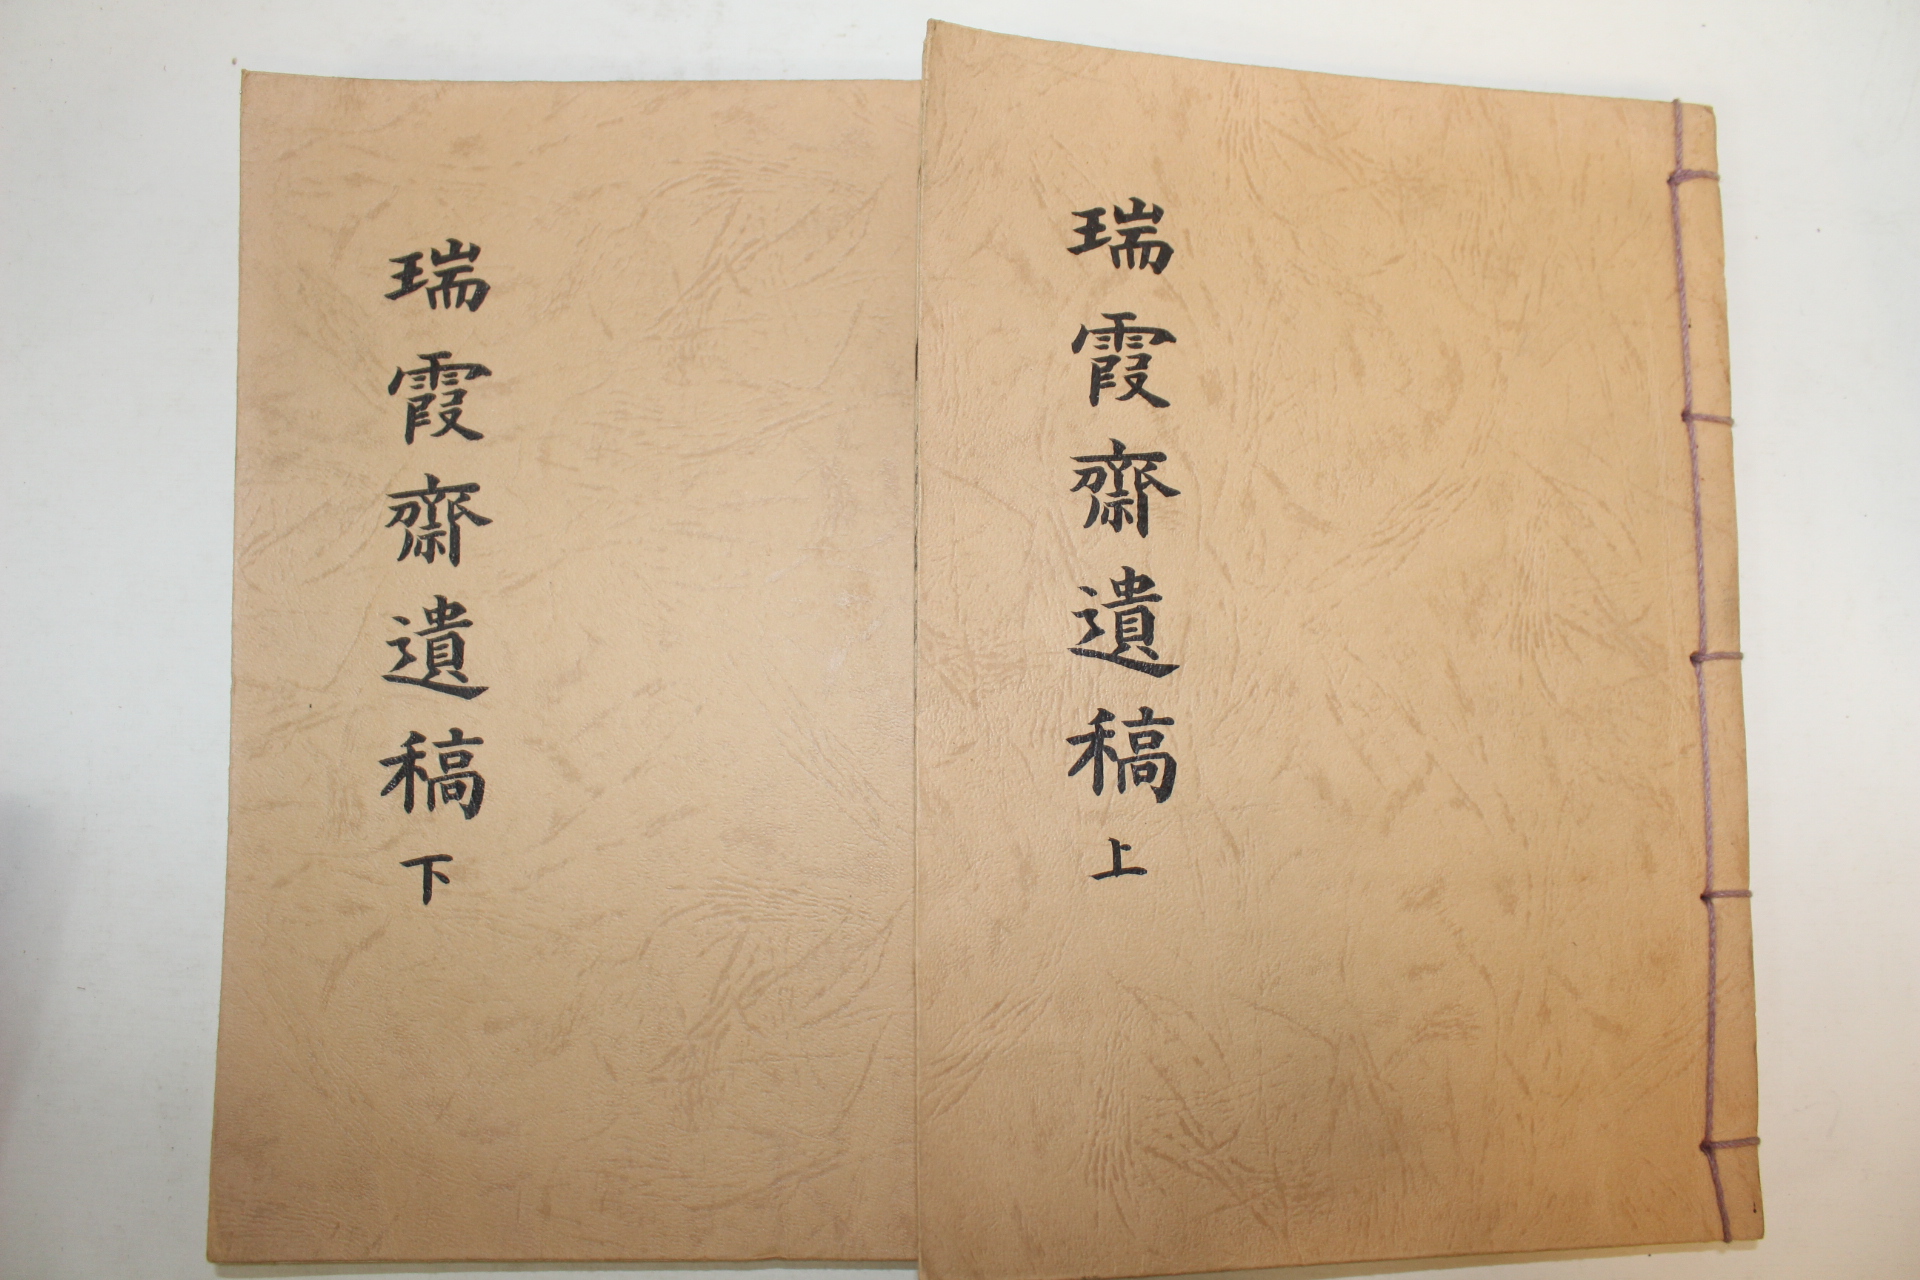 瑞霞齋遺稿上
瑞霞齋遺稿下